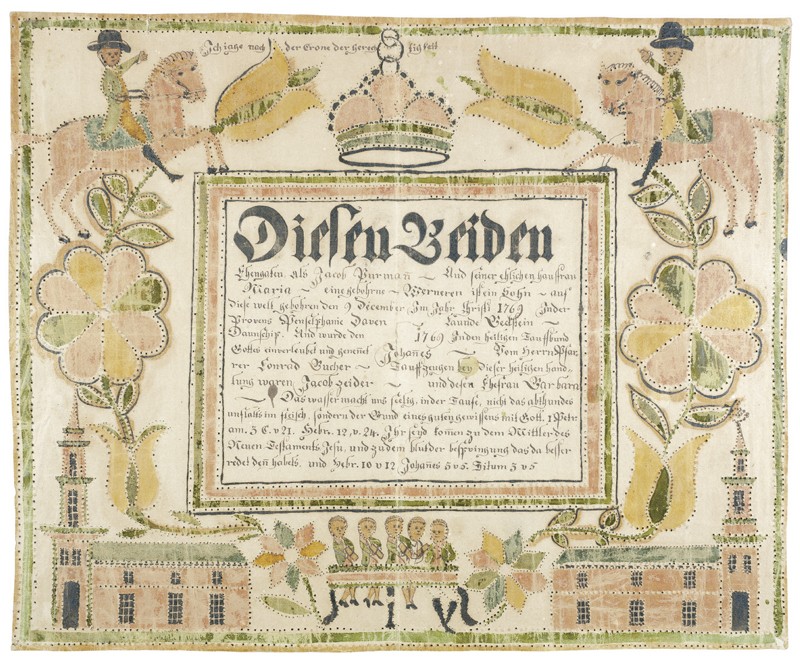 Ich jage nach der Crone der Herechtigkeit
Diesen Beiden
Ehengaten. als Jacob Burman ~ Und seiner ehlichen haussrau
Maria ~ eine gebohrne ~ Werneren ist ein Sohn ~ auf
diese welt gebohren den 9 December Im Jahr Christi 1769 In der
Provens Penselphanie Caunde Bechstein ~
Daunschip. Und wurde den 1769 In den heiligen Tauffbund
Gottes einverleibet und genenet Johanes ~ Vom Herrn Pfar
rer Conrad Bucher ~ Tauffzeugen bey dieser heiligen hand-
lung waren Jacob zeider ~ und desen Ehefrau Barbara
~ Das wasser macht uns seelig, in der Taufe, nicht das abthundes
unflaths im fleisch, sondern der Bund eines guten gewissens mit Gott. 1 Petr:
am. 3 C. v 21. Hebr. 12, v. 24. Ihr seyd komen zu dem Mittler des
Neuen Testaments Jesu, und zu dem blut der besprngung das da besser
redet den habels. und Hebr. 10 v 12 Johanes 3 v 5. Titum 3 v 5